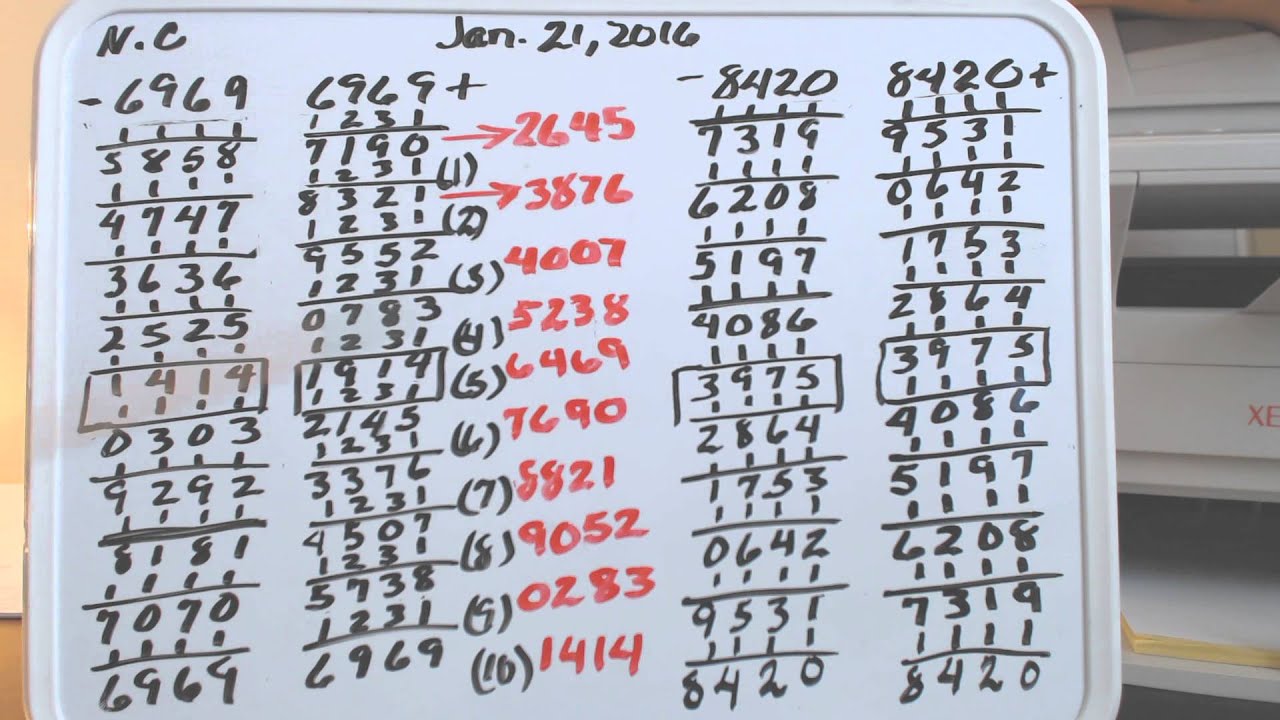 N.C
Jan. 21, 2016
-6969
1111
5858
1111
4747
1111
3636
1111
2525
1111
1414
1111
0303
1111
9292
1111
8181
1111
7070
1111
6969
6969+
1231
7190
1231
8321
1231
9552
1231
0783
1231
1914
1231
2145
1231
3376
1231
4507
1231
5738
1231
6969
→2645
(1)
→3876
(2)
(3) 4007
(4) 5238
(5) 6469
(6) 7690
(7) 8821
(8) 9052
(9) 0283
(10) 1414
-8420
1111
7319
1111
6208
1111
5197
1111
4086
1111
3975
1111
2864
1111
1753
1111
0642
1111
9531
1111
8420
8420+
1111
9531
1111
0642
1111
1753
1111
2864
1111
3975
1111
4086
1111
5197
1111
6208
1111
7319
1111
8420
XE